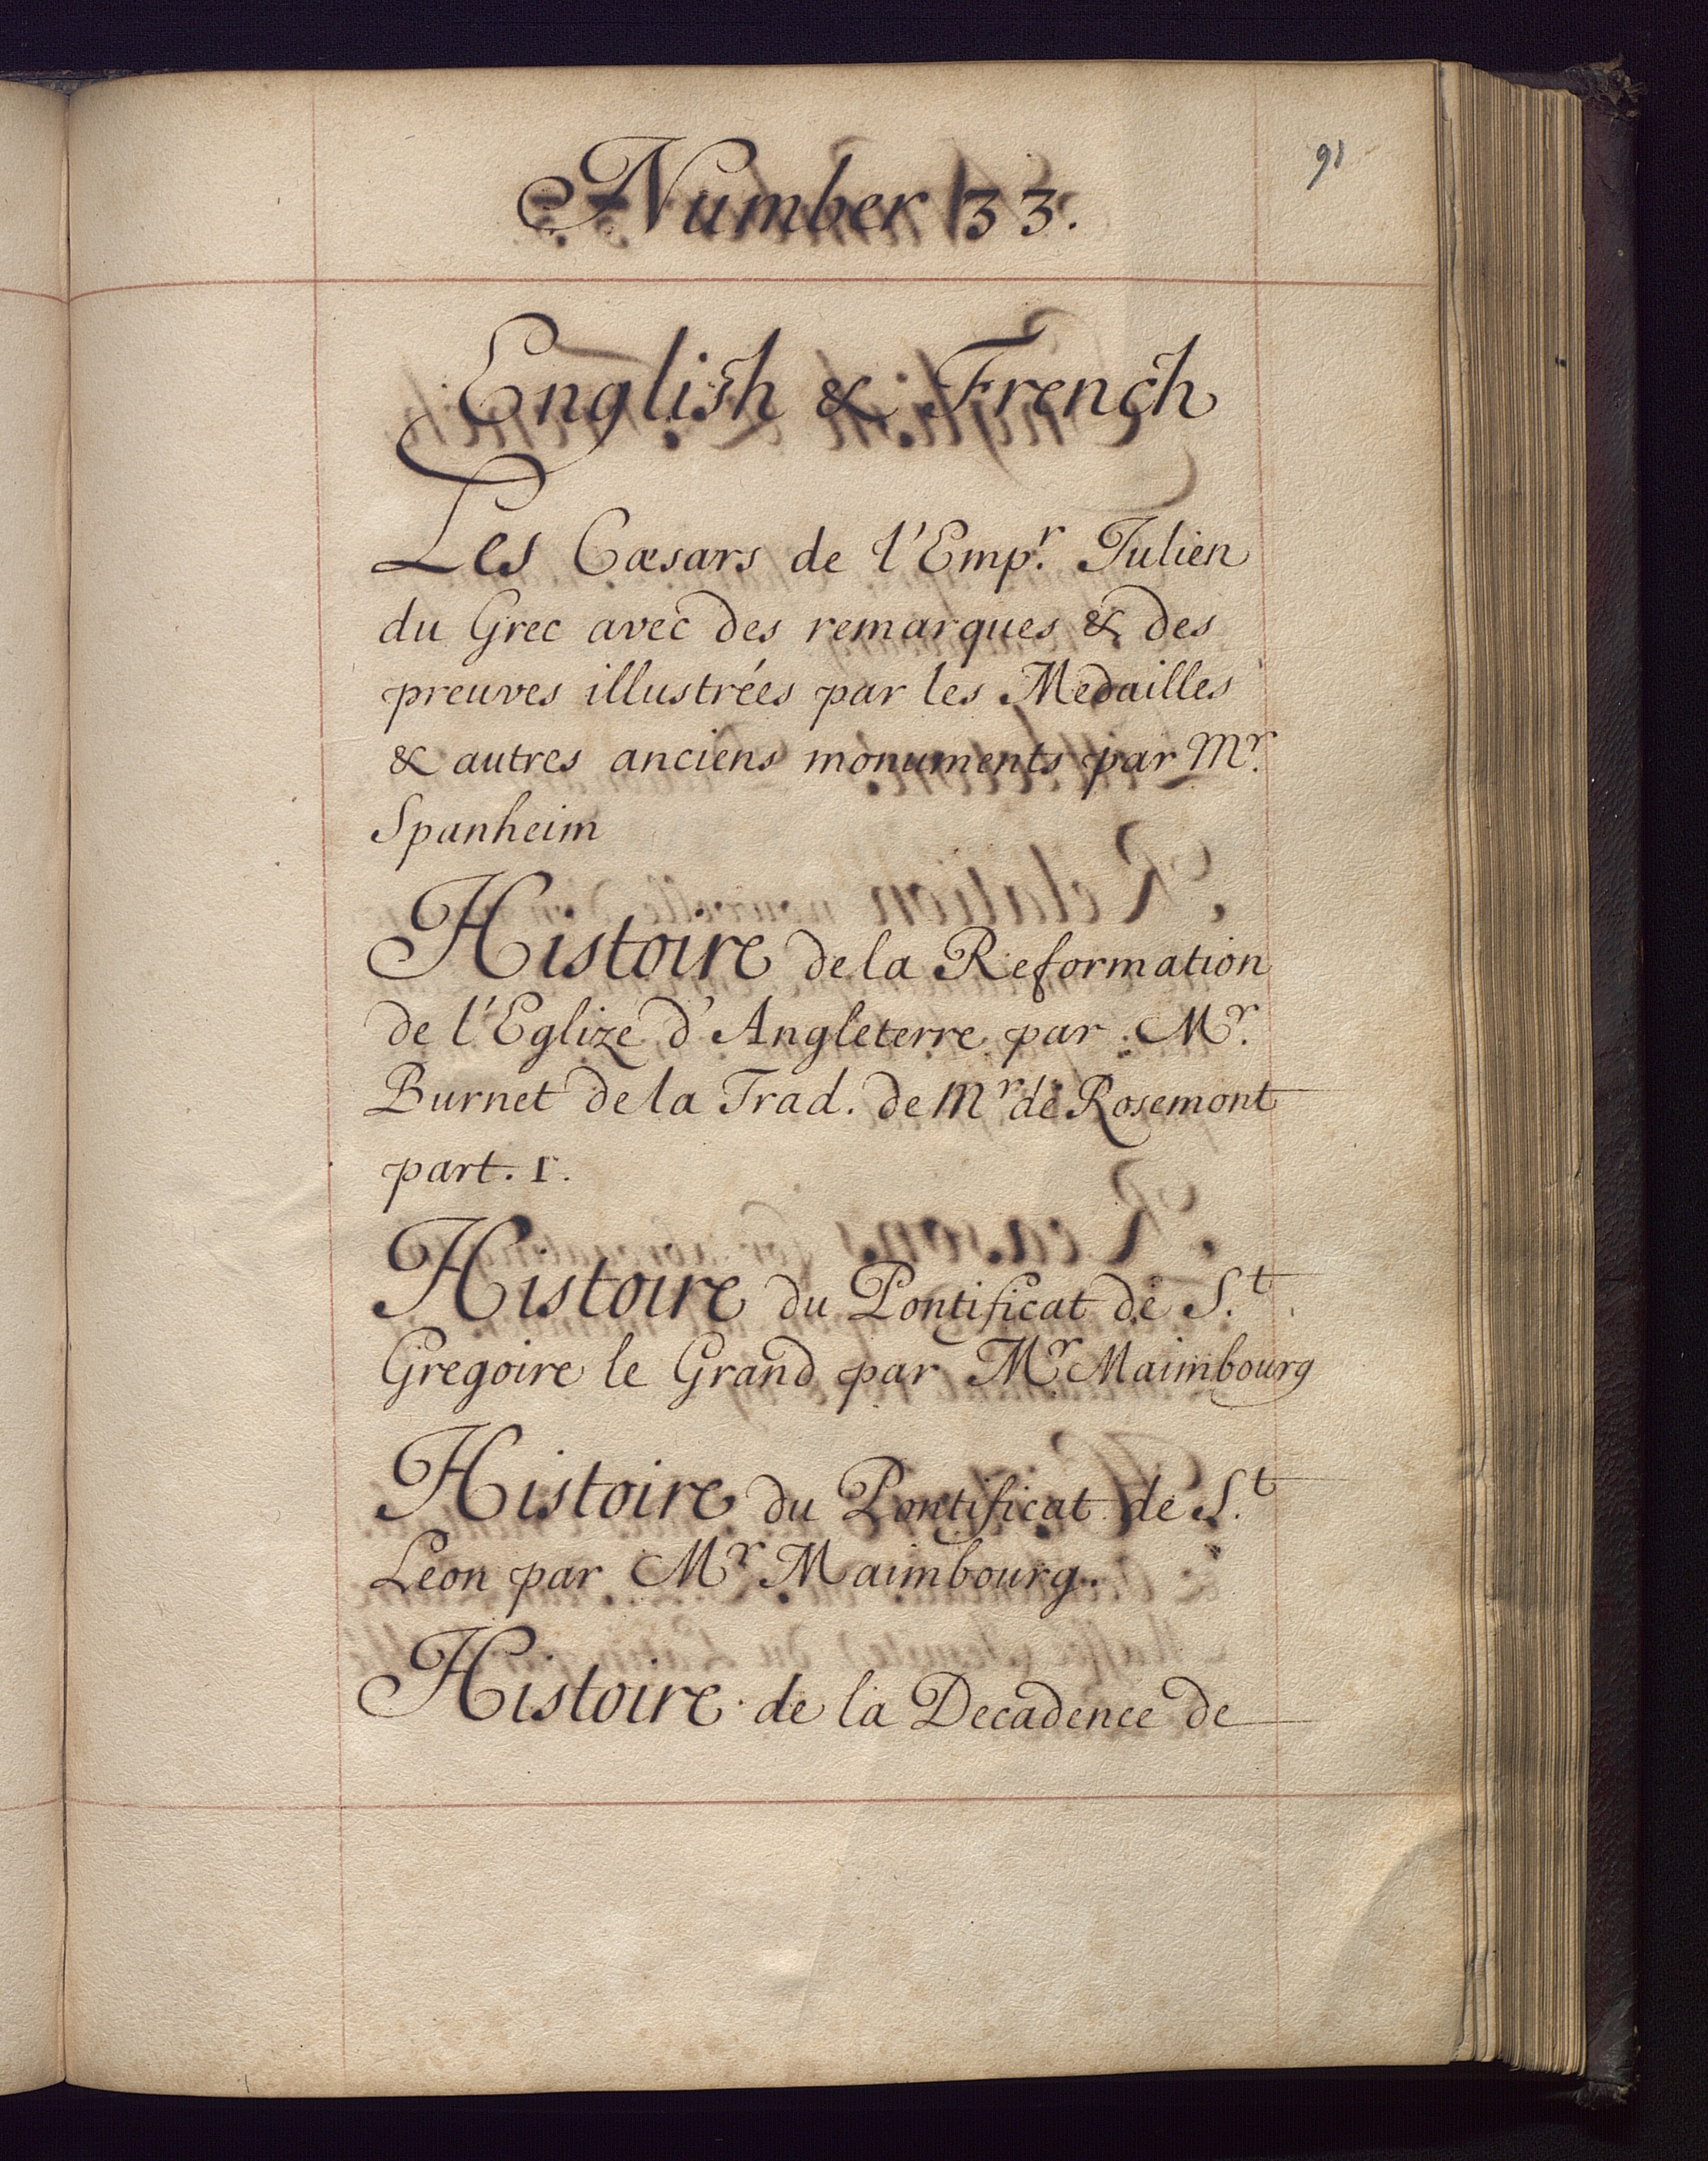 91
Number 33.
English & French
Les Cæsars de l'Emp.r Julien
du Grec avec des remarques & des
preuves illustrées par les Medailles
& autres anciens monuments par Mr.
Spanheim
Histoire de la Reformation
de l'Eglize d'Angleterre par Mr.
Burnet de la Trad. de Mr de Rosemont
part. I.
Histoire du Pontificat de S.t
Gregoire le Grand par Mr Maimbourg
Histoire du Pontificat de S.t
Leon par Mr Maimbourg.
Histoire de la Decadence de